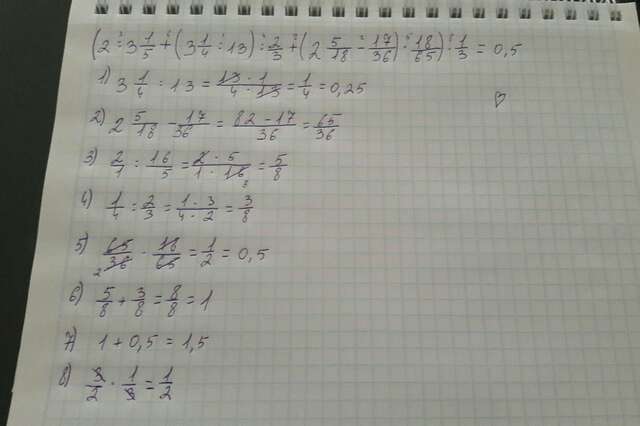 (2 : 3 1/5 + (3 1/4 : 13) : 2/3 + (2 5/18 - 17/36) · 18/65) · 1/3 = 0,5
1) 3 1/4 : 13 = 13 · 1 / 4 · 13 = 1/4 = 0,25
2) 2 5/18 - 17/36 = 82 - 17 / 36 = 65/36
3) 2/1 : 16/5 = 2 · 5 / 1 · 16 = 5/8
4) 1/4 : 2/3 = 1 · 3 / 4 · 2 = 3/8
5) 65/36 · 18/65 = 1/2 = 0,5
6) 5/8 + 3/8 = 8/8 = 1
7) 1 + 0,5 = 1,5
8) 3/2 · 1/3 = 1/2